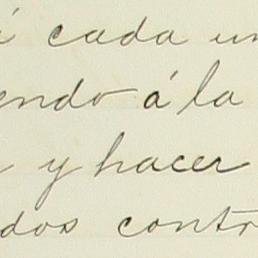 í cada un
endo á la
y hacer
dos contr